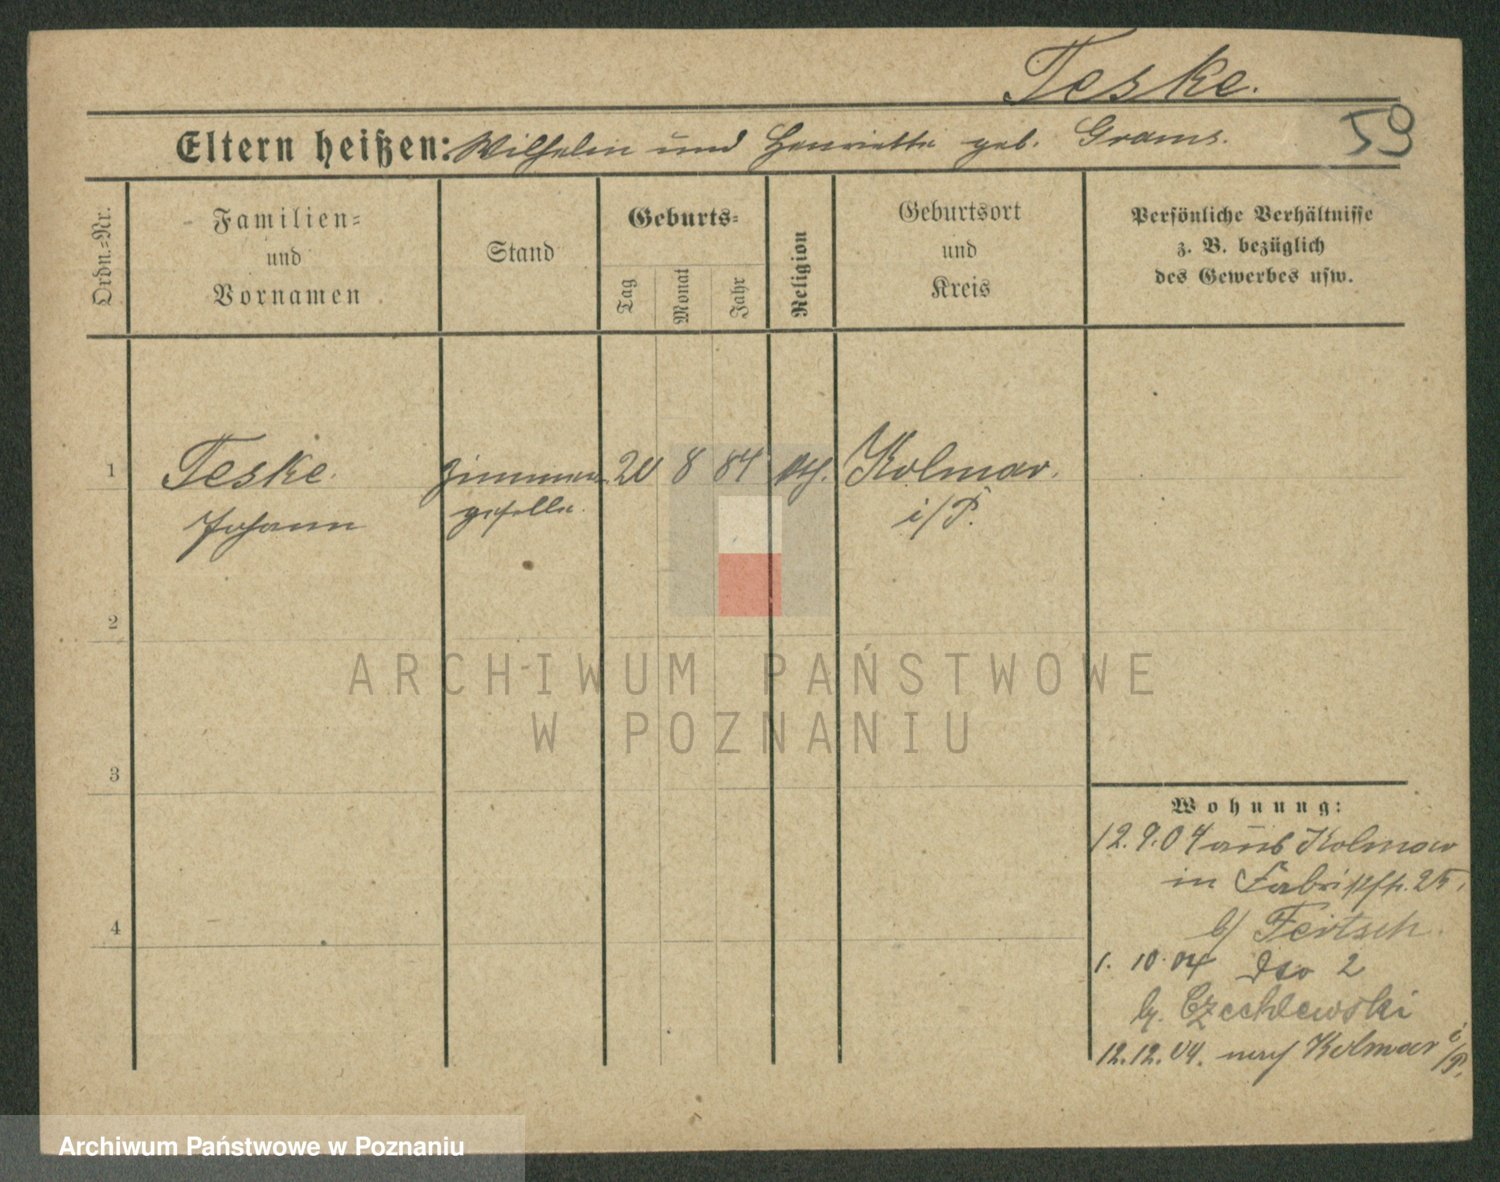 Teske.
59
Eltern heißen: Wilhelm und Henriette geb. Grams.
Ordn.-Nr.
Familien-
und
Vornamen
Stand
Geburts-
Tag
Monat
Jahr
Religion
Geburtsort
und
Kreis
Persönliche Verhältnisse
z. B. bezüglich
des Gewerbes usw.
1
Teske.
Johann
Zimmer
geselle.
20 8 84
Kolmar.
i/P.
2
3
4
Wohnung:
12.9.04 aus Kolmar
in Fabrikstr. 25.
b/ Feitsch.
1. 10. 04 dso 2
b. Czechlewski
12.12.04. nach Kolmar i/P.
ARCHIWUM PAŃSTWOWE
W POZNANIU
Archiwum Państwowe w Poznaniu